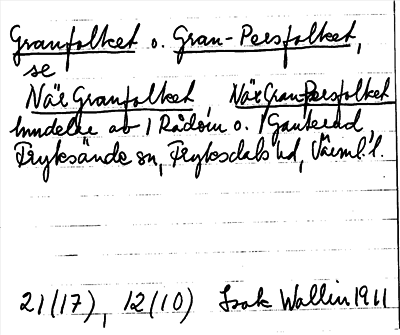 Granfolket o. Gran-Persfolket,
se
När Granfolket, När Gran-Persfolket
hundelse av / Rådom o. / Gunnerud,
Fryksände sn, Fryksdals hd, Värml. l.
21(17), 12(10) Isak Wallin 1911